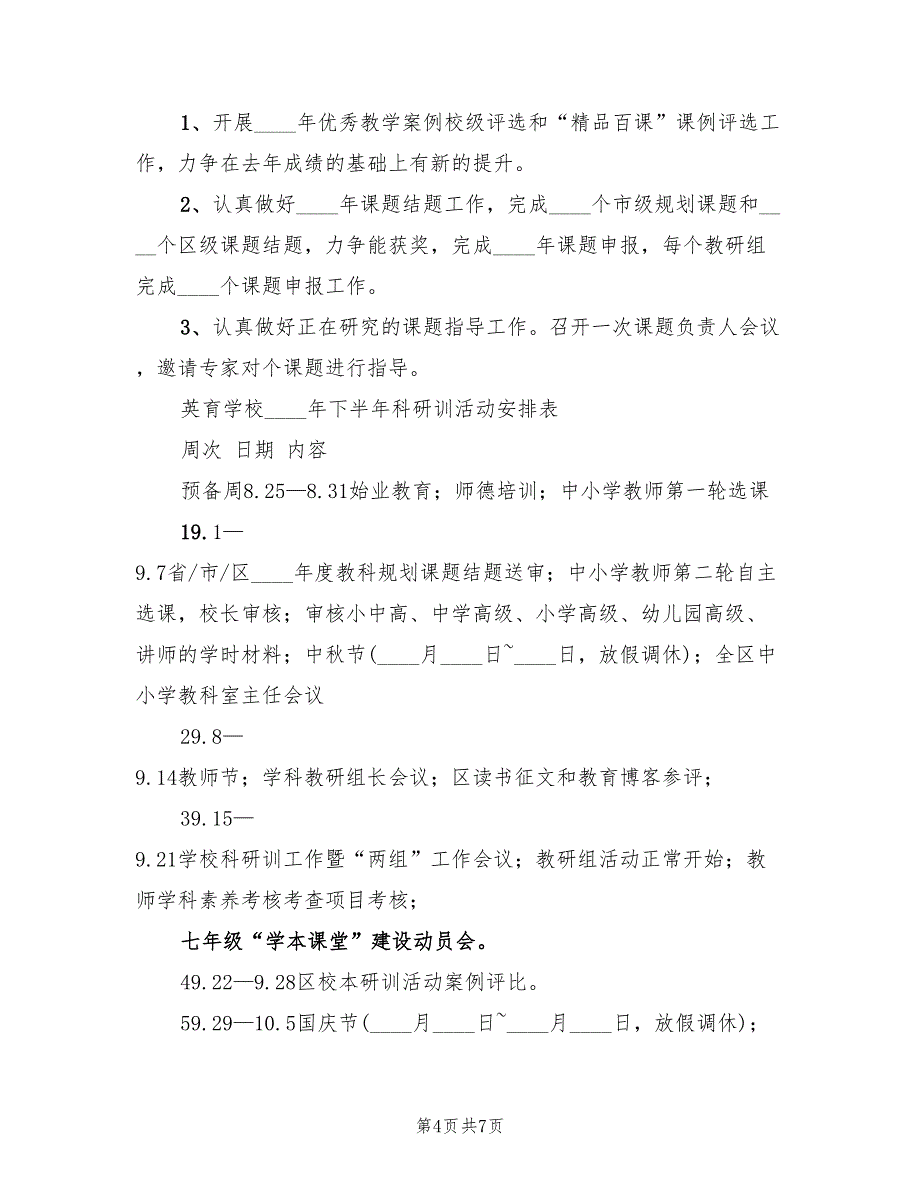 1、开展____年优秀教学案例校级评选和“精品百课”课例评选工
作，力争在去年成绩的基础上有新的提升。
2、认真做好____年课题结题工作，完成____个市级规划课题和__
__个区级课题结题，力争能获奖，完成____年课题申报，每个教研组
完成____个课题申报工作。
3、认真做好正在研究的课题指导工作。召开一次课题负责人会议
，邀请专家对个课题进行指导。
英育学校____年下半年科研训活动安排表
周次 日期 内容
预备周8.25—8.31始业教育；师德培训；中小学教师第一轮选课
19.1—
9.7省/市/区____年度教科规划课题结题送审；中小学教师第二轮自主
选课，校长审核；审核小中高、中学高级、小学高级、幼儿园高级、
讲师的学时材料；中秋节(____月____日~____日，放假调休)；全区中
小学教科室主任会议
29.8—
9.14教师节；学科教研组长会议；区读书征文和教育博客参评；
39.15—
9.21学校科研训工作暨“两组”工作会议；教研组活动正常开始；教
师学科素养考核考查项目考核；
七年级“学本课堂”建设动员会。
49.22—9.28区校本研训活动案例评比。
59.29—10.5国庆节(____月____日~____月____日，放假调休)；
第4页共7页